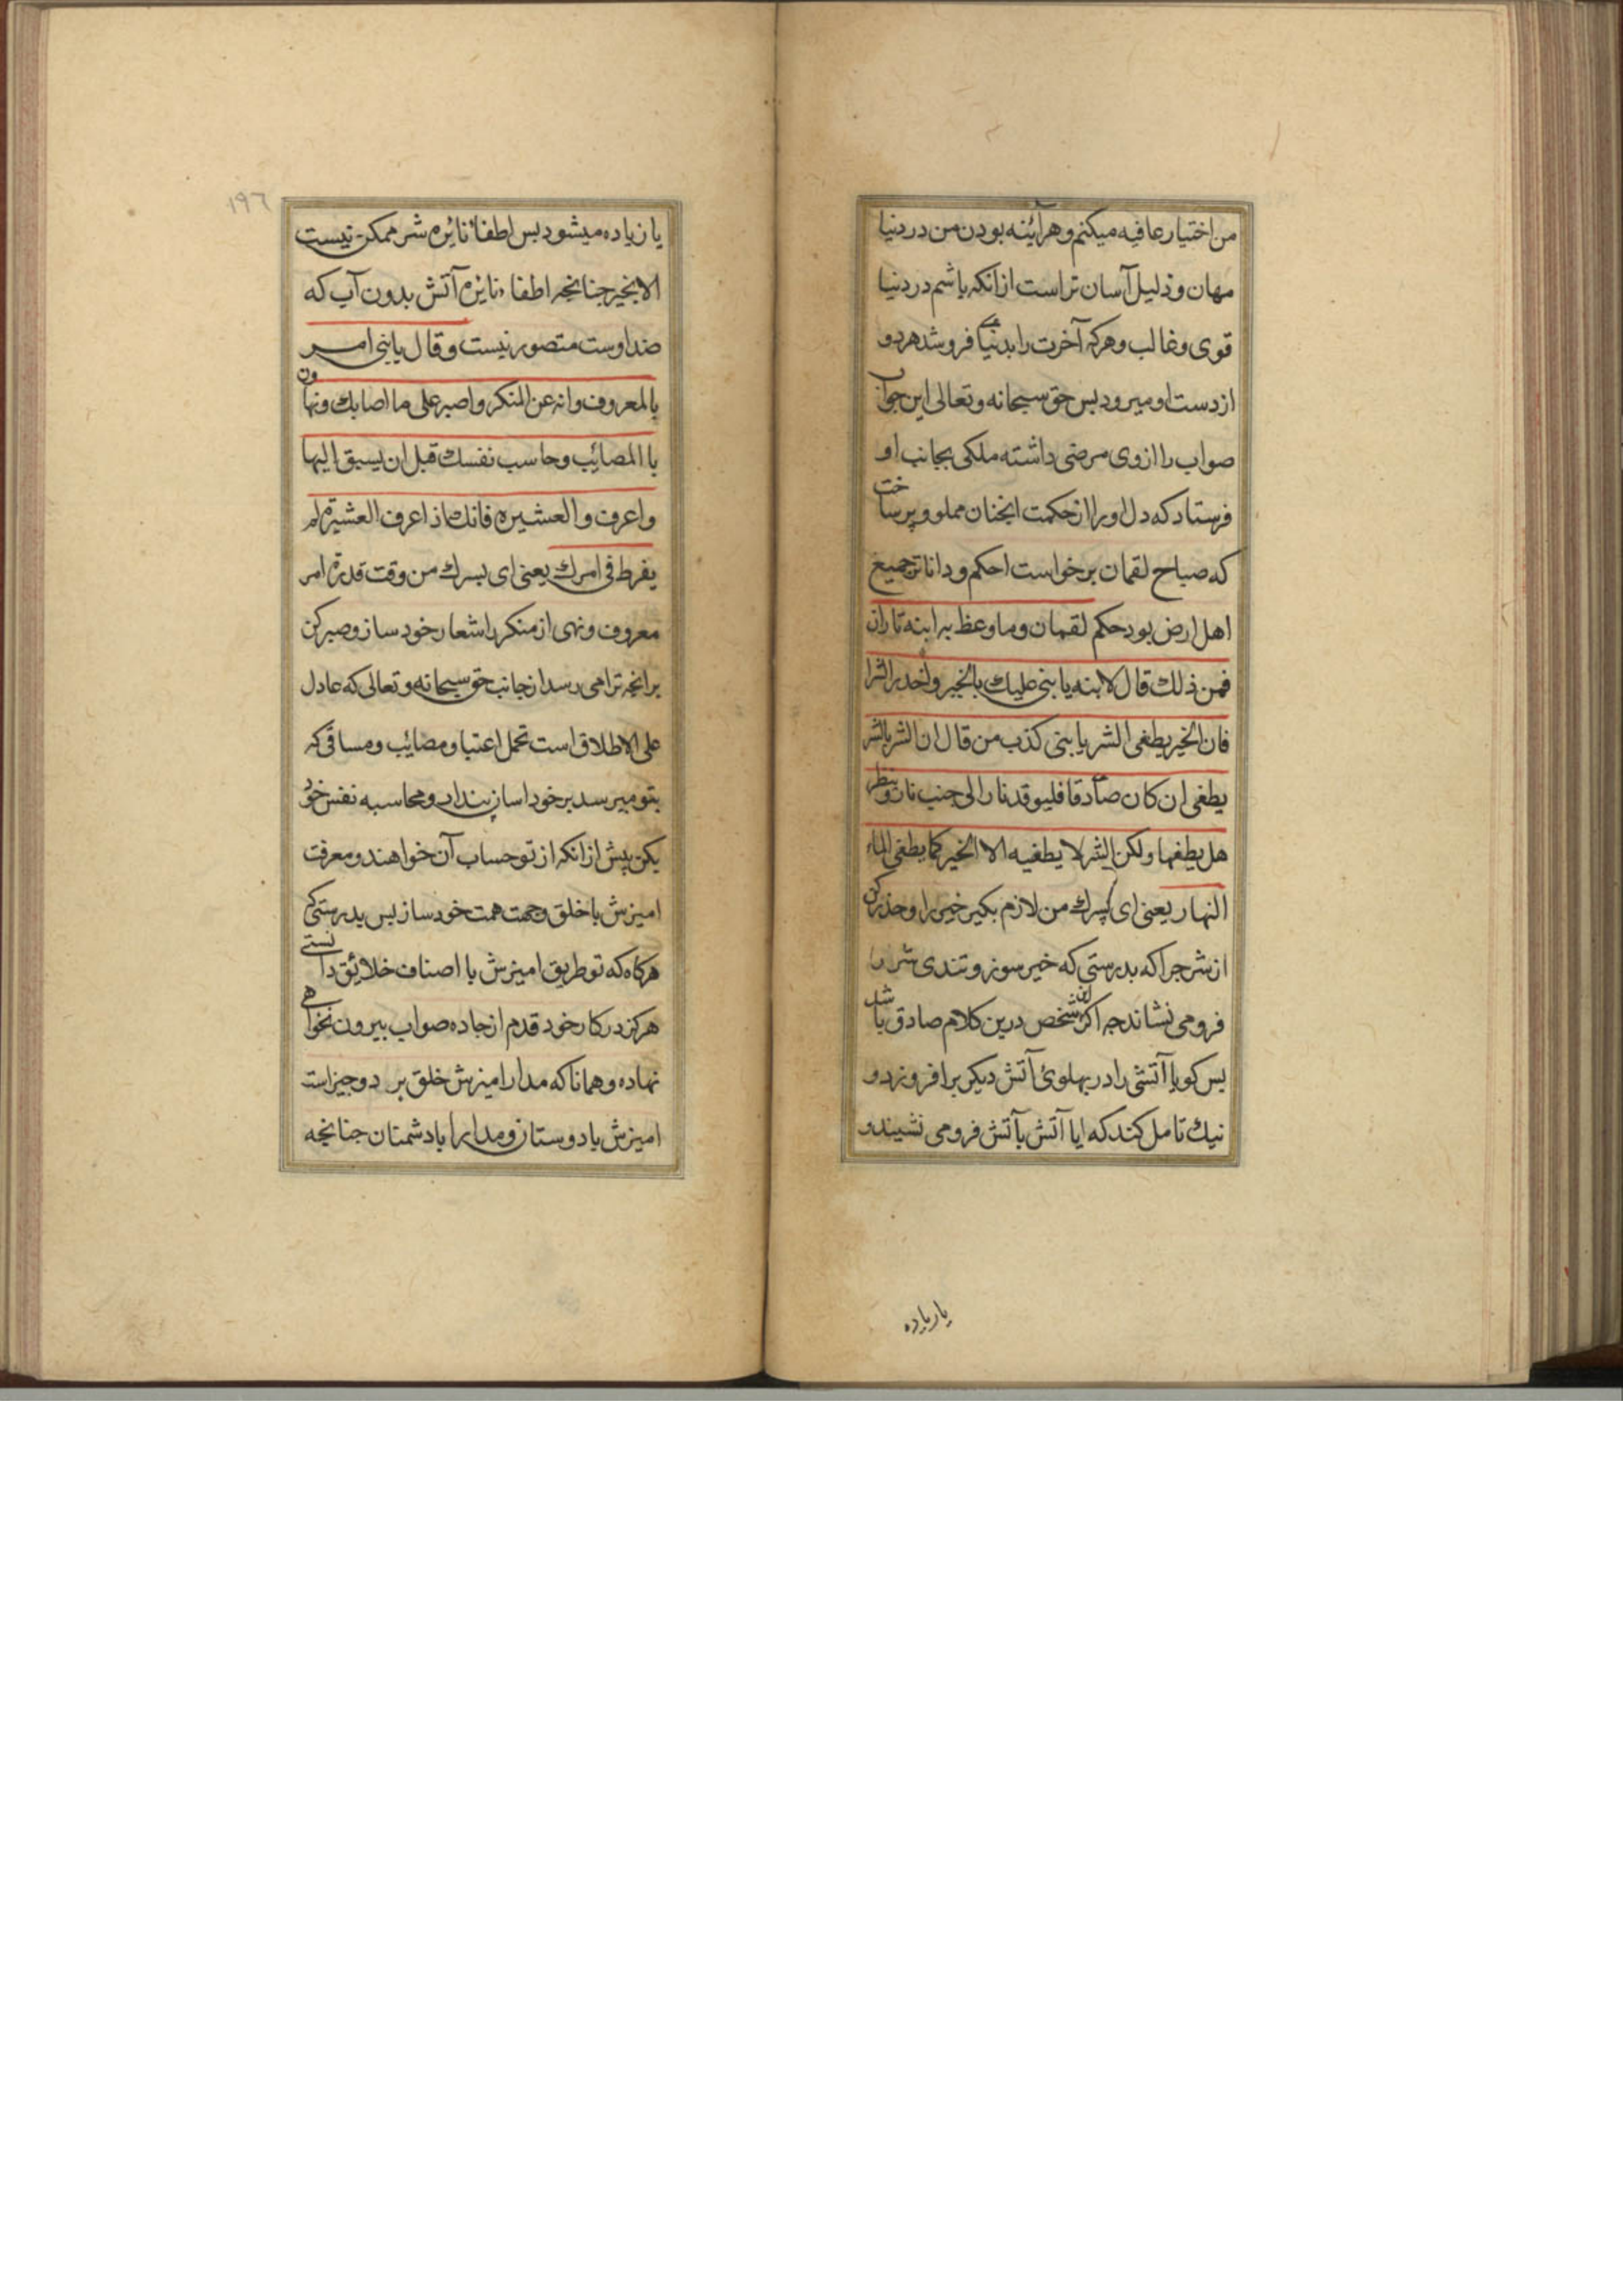 من اختیار عافیه میکنم و هرآئینه بودن من در دنیا
مهان و ذلیل آسان تر است ازانکه باشم در دنیا
قوی و غالب و هرکه آخرت را بدنیا می فروشد هر دو
از دست او میرود بس حق سبحانه و تعالی این جواب
صواب را ازوی مرضی داشته ملکی بجانب او
فرستاد که دل او را از حکمت انجنان مملو و پر ساخت
که صباح لقمان برخواست احکم و داناتر جمیع
اهل ارض بود حکم لقمان وما وعظ به ابنه تاران
فمن ذلك قال لابنه یا بنی علیك بالخیر واحذر الشر
فان الخیر یطفی الشر یا بنی کذب من قال ان الشر بالشر
یطفی ان کان صادقا فلیوقد نارا الی جنب نار وینظر
هل یطفها ولکن الشر لا یطفیه الا الخیر کما یطفی الماء
النهار یعنی ای پسرك من لازم بکیر خیر را و حذر کن
از شر جرا که بدرستی که خیر سوز و تندی شر را
فرو می نشاند جه اکر این شخص درین کلام صادق باشد
بس کو یا آتشی را در بهلوئ آتش دیکر برافروزد و
نیك تامل کند که ایا آتش بآتش فرو می نشیند و
یا زیاده
١٩٦
یا زیاده میشود بس اطفاء نائره شر ممکن نیست
الا بخیر جنانجه اطفاء نائره آتش بدون آب که
ضد اوست متصور نیست و قال یا بنی امر
بالمعروف وانه عن المنکر واصبر علی ما اصابك ونهاون
با المصائب وحاسب نفسك قبل ان یسبق الیها
واعرف والعشیره فانك اذ اعرف العشیرة لم
یفرط فی امرك یعنی ای بسرك من وقت قدرة امر
معروف و نهی از منکر را شعار خود ساز و صبر کن
برانجه ترا می رسد از جانب حق سبحانه و تعالی که عادل
علی الاطلاق است تحمل اعتبا و مصائب و مساقی که
بتو میرسد بر خود اسان بندار و محاسبه نفس خود
بکن پیش ازانکه از تو حساب آن خواهند و معرفت
امیزش با خلق وجهت همت خود ساز بس بدرستی که
هرکاه که تو طریق امیزش با اصناف خلائق دانستی
هرکز در کار خود قدم از جاده صواب بیرون نخواهی
نهاد و همانا که مدار امیزش خلق بر دو جیز است
امیزش با دوستان و مدارا با دشمنان جنانجه